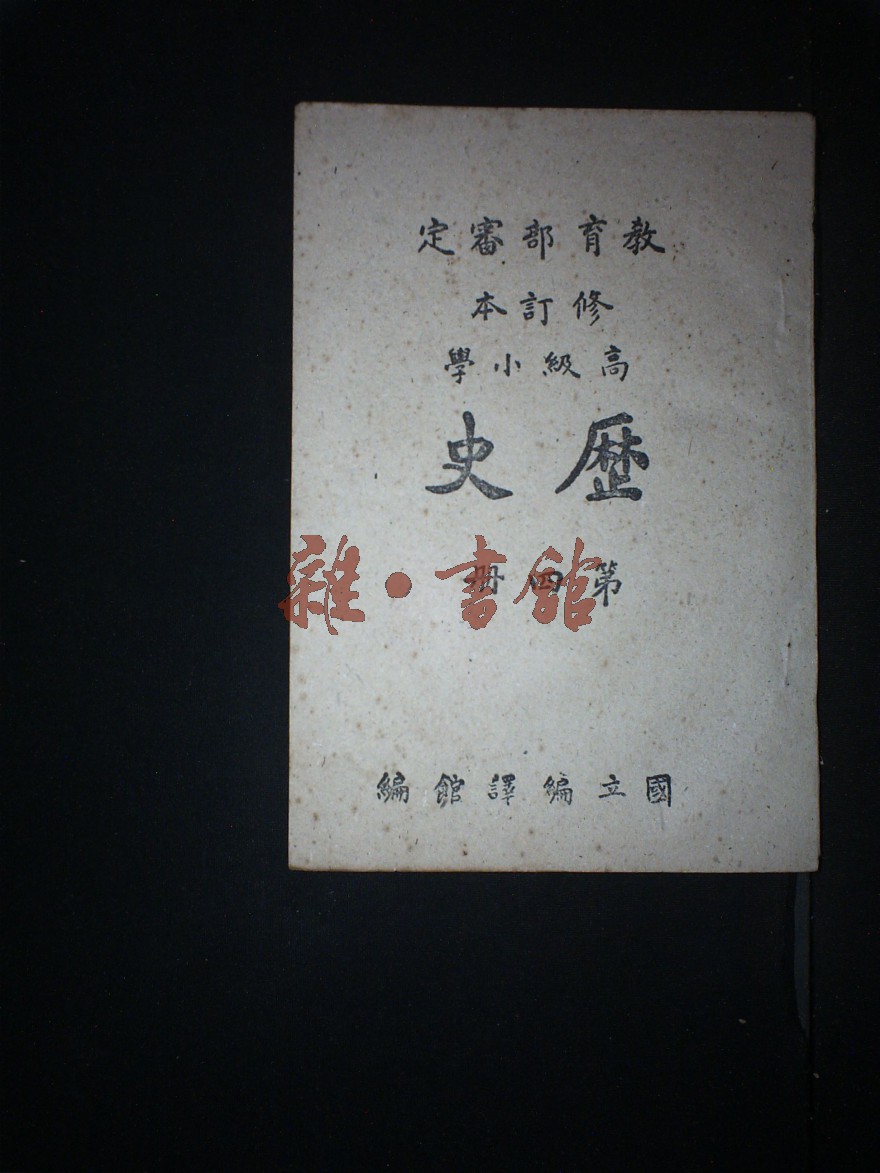 教育部審定
修訂本
高級小學
歷史
第四册
雜·書館
國立編譯館編